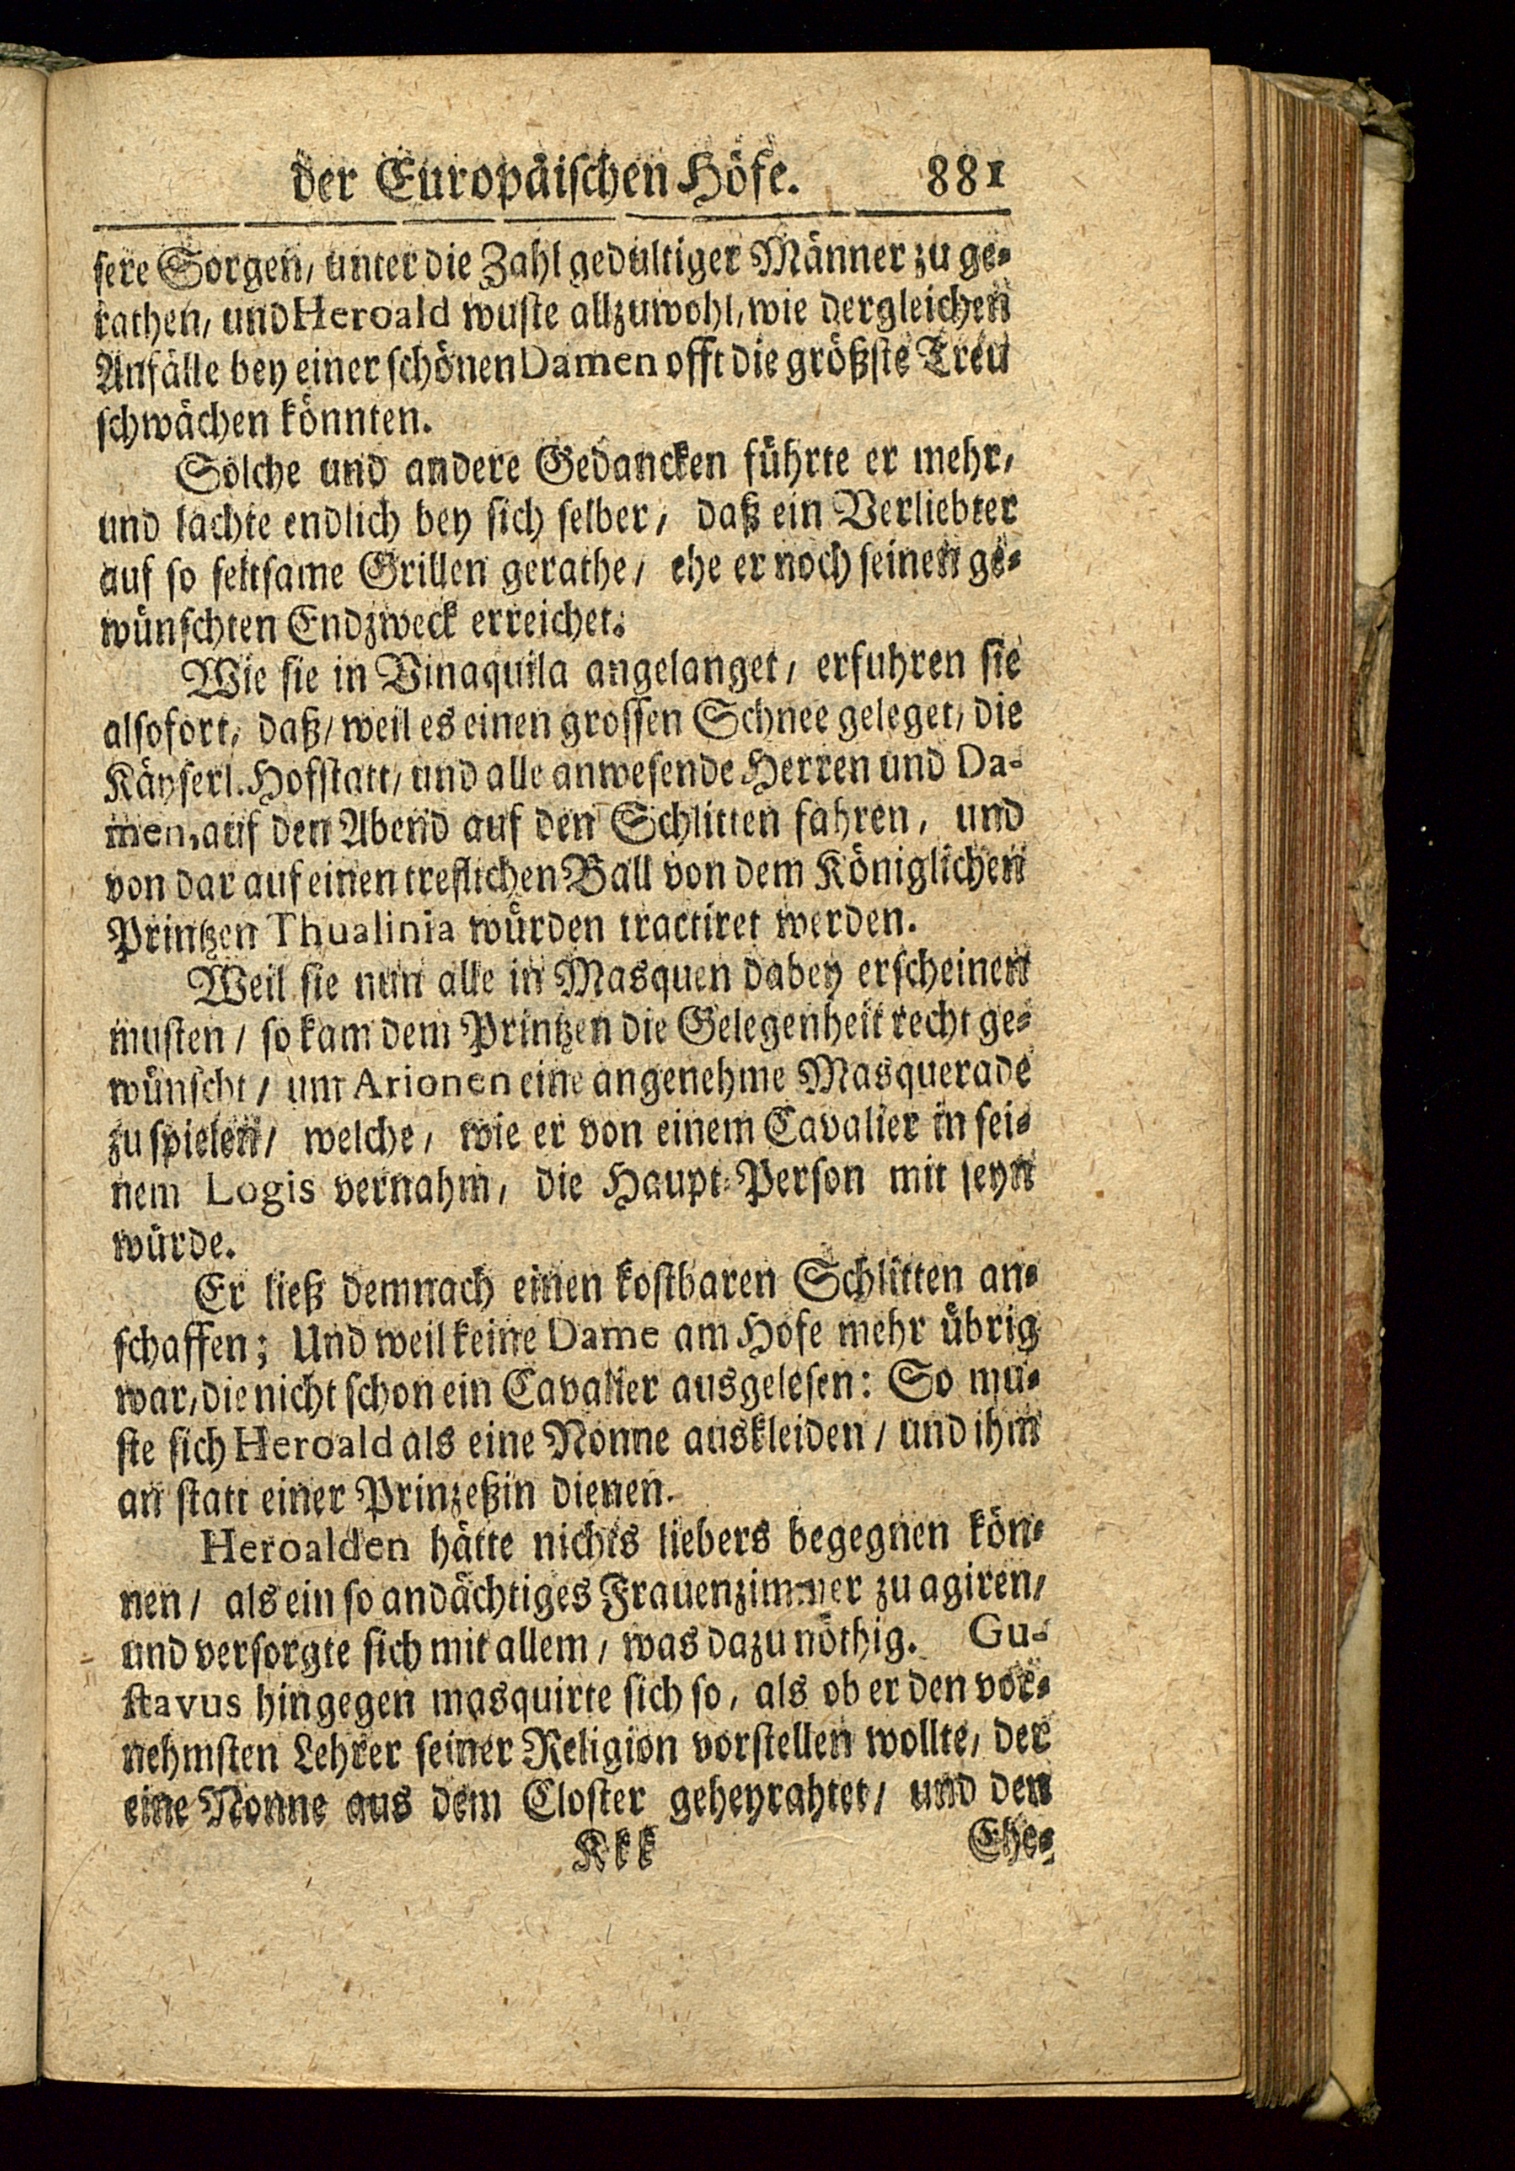 der Europäischen Höfe. 881
sere Sorgen/ unter die Zahl gedultiger Männer zu ge-
rathen/ und Heroald wuste allzuwohl/ wie dergleichen
Anfälle bey einer schönen Damen offt die größste Treu
schwächen könnten.
Solche und andere Gedancken führte er mehr/
und lachte endlich bey sich selber/ daß ein Verliebter
auf so seltsame Grillen gerathe/ ehe er noch seinen ge-
wünschten Endzweck erreichet.
Wie sie in Vinaquila angelanget/ erfuhren sie
alsofort/ daß/ weil es einen grossen Schnee geleget/ die
Käyserl. Hofstatt/ und alle anwesende Herren und Da-
men, auf den Abend auf den Schlitten fahren/ und
von dar auf einen treflichen Ball von dem Königlichen
Printzen Thualinia würden tractiret werden.
Weil sie nun alle in Masquen dabey erscheinen
musten/ so kam dem Printzen die Gelegenheit recht ge-
wünscht/ um Arionen eine angenehme Masquerade
zu spielen/ welche/ wie er von einem Cavalier in sei-
nem Logis vernahm/ die Haupt-Person mit seyn
würde.
Er ließ demnach einen kostbaren Schlitten an-
schaffen; Und weil keine Dame am Hofe mehr übrig
war/ die nicht schon ein Cavalier ausgelesen: So mu-
ste sich Heroald als eine Nonne auskleiden/ und ihm
an statt einer Prinzeßin dienen.
Heroalden hätte nichts liebers begegnen kön-
nen/ als ein so andächtiges Frauenzimmer zu agiren/
und versorgte sich mit allem/ was dazu nöthig. Gu-
stavus hingegen masquirte sich so/ als ob er den vor-
nehmsten Lehrer seiner Religion vorstellen wollte/ der
eine Nonne aus dem Closter geheyrahtet/ und den
Kkk Ehe-